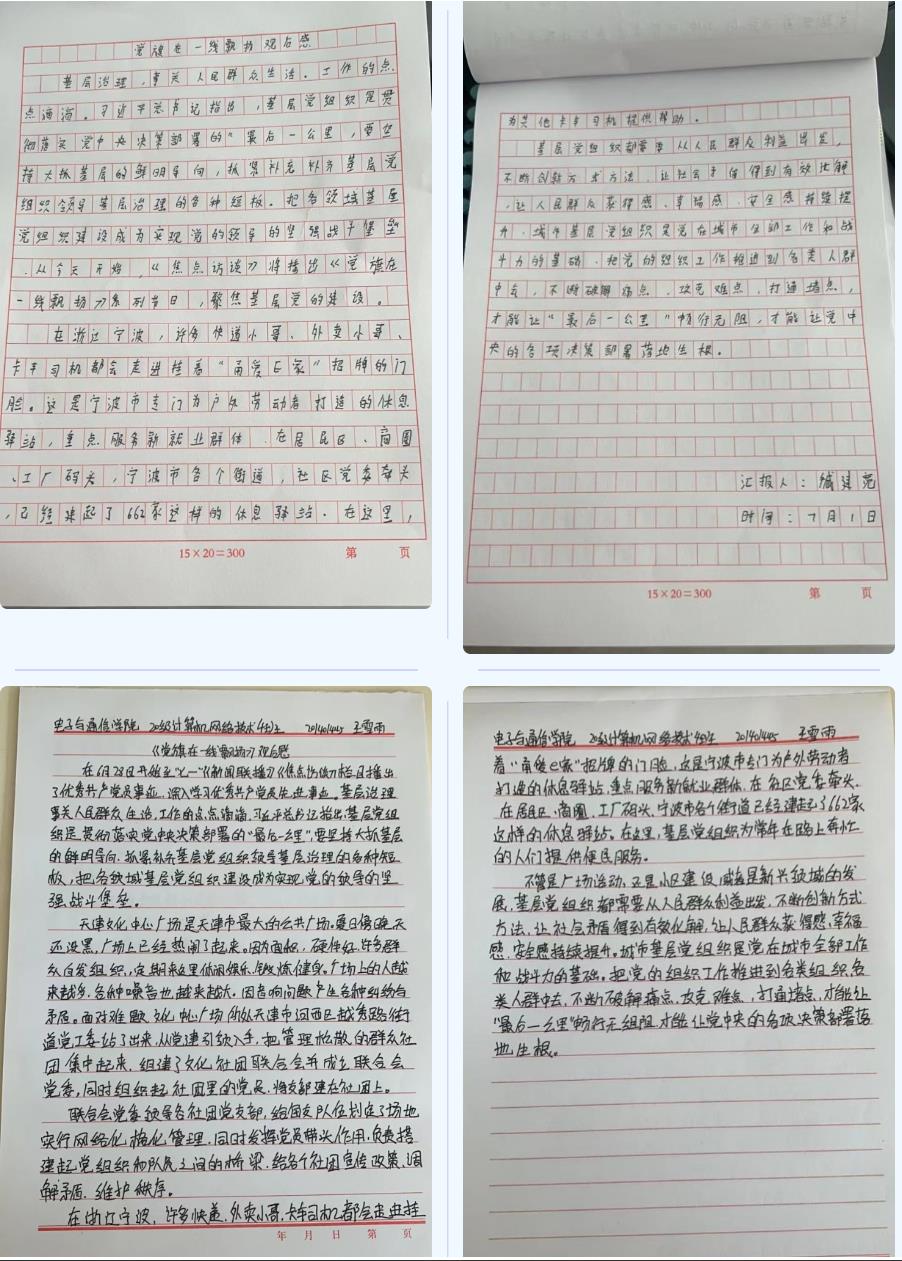 党旗在一线飘扬观后感
基层治理，事关人民群众生活、工作的点
点滴滴。习近平总书记指出，基层党组织是贯
彻落实党中央决策部署的“最后一公里，要坚
持大抓基层的鲜明导向，抓紧补充补齐基层党
组织领导基层治理的各种短板。把各领域基层
党组织建设成为实现党的领导的坚强战斗堡垒
.从今天开始，《焦点访谈》将播出《党旗在
一线飘扬》系列节目，聚焦基层党的建设。
在浙江宁波，许多快递小哥、外卖小哥、
卡车司机都会走进挂着“甬爱E家”招牌的门
脸。这是宁波市专门为户外劳动者打造的休息
驿站，重点服务新就业群体.在居民区、商圈
、工厂码头，宁波市各个街道，社区党委牵头
，已经建起了662家这样的休息驿站.在这里，
15×20=300 第 页
为其他卡车司机提供帮助。
基层党组织都需要从人民群众利益出发，
不断创新方式方法，让社会矛盾得到有效化解
，让人民群众获得感、幸福感、安全感持续提
升.城市基层党组织是党在城市全部工作和战
斗力的基础.把党的组织工作推进到各类人群
中去，不断破解痛点、攻克难点，打通堵点，
才能让“最后一公里”畅行无阻，才能让党中
央的各项决策部署落地生根。
汇报人：臧建苑
时间：7月1日
15×20=300 第 页
电子与通信学院 20级计算机网络技术(4)班 王雪雨
《党旗在一线飘扬》观后感
在6月28日开始至七一《新闻联播》《焦点访谈》栏目播出
了优秀共产党员事迹，深入学习优秀共产党员先进事迹。基层治理
事关人民群众生活、工作的点点滴滴，习近平总书记指出，基层党组
织是贯彻落实党中央决策部署的“最后一公里”，要坚持大抓基层
的鲜明导向，抓紧补齐基层党组织领导基层治理的各种短
板，把各领域基层党组织建设成为实现党的领导的坚
强战斗堡垒。
天津文化中心广场是天津市最大的公共广场。每日傍晚天
还没黑，广场上已经热闹了起来。因为面积，硬件好，许多群
众自发组织，定期来这里休闲娱乐，锻炼健身。广场上的人越
来越多，各种噪音也越来越大，因音响问题产生各种纠纷与
矛盾。面对难题文化中心广场所处天津市河西区越秀路街
道党工委站了出来，从党建引领入手，把管理松散的群众社
团集中起来，组建了文化社团联合会并成立联合会
党委，同时组织起社团里的党员，将支部建在社团上。
联合会党委领导各社团党支部，给团支队伍划定了场地
实行网络化格化管理，同时发挥党员带头作用，负责搭
建起党组织和队员之间的桥梁，给各个社团宣传政策、调
解矛盾、维护秩序。
在浙江宁波，许多快递、外卖小哥，卡车司机都会走进挂
年 月 日 第 页
电子与通信学院 20级计算机网络技术(4)班 王雪雨
着“甬爱e家”招牌的门脸，这是宁波市专门为户外劳动者
打造的休息驿站，重点服务新就业群体，在社区党委牵头，
在居民区、商圈、工厂码头，宁波市各个街道已经建起了662家
这样的休息驿站。在这里，基层党组织为常年在路上奔忙
的人们提供便民服务。
不管是广场活动，还是小区建设，或者是新兴领域的发
展，基层党组织都需要从人民群众利益出发，不断创新方式
方法，让社会矛盾得到有效化解，让人民群众获得感，幸福
感，安全感持续提升。城市基层党组织是党在城市全部工作
和战斗力的基础，把党的组织工作推进到各类组织各
类人群中去，不断破解痛点，攻克难点，打通堵点，才能让
“最后一公里”畅行无阻，才能让党中央的各项决策部署落
地生根。